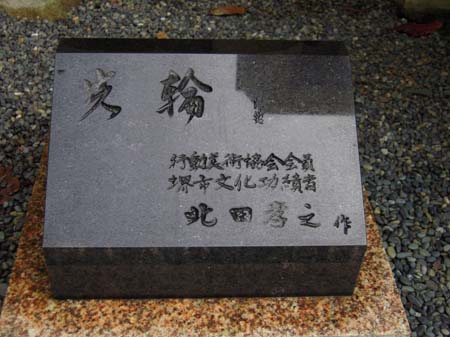 光輪
行動美術協会会員
堺市文化功績者
北田孝之 作